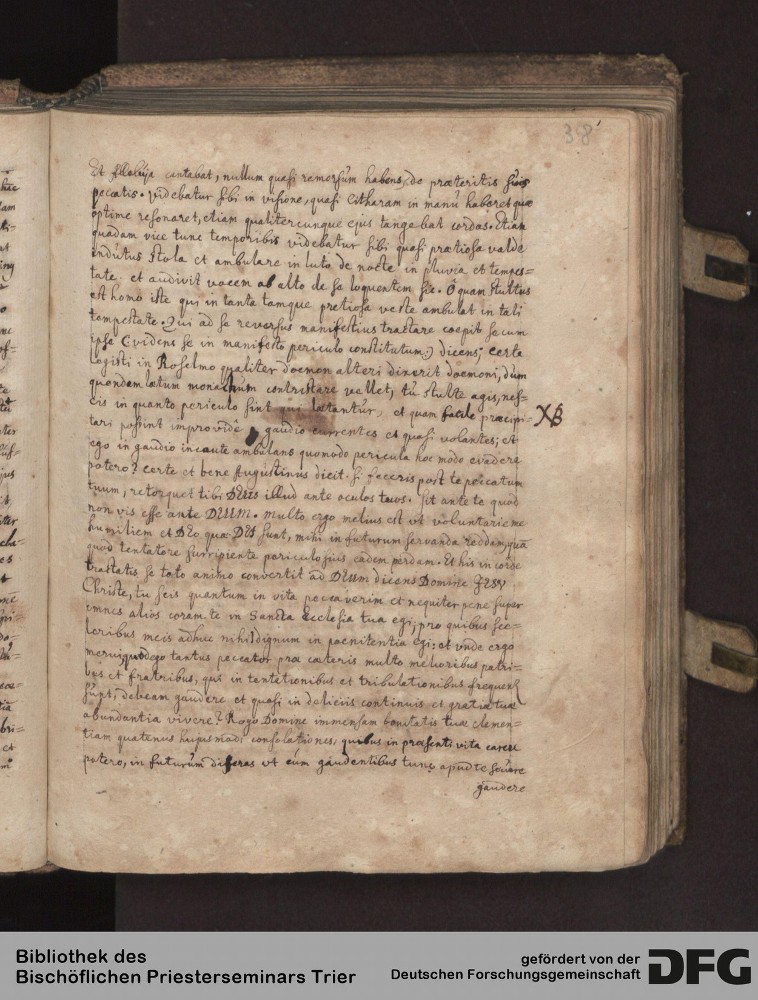 38
Et Alleluja cantabat, nullum quasi remorsum habens, de præteritis suis
peccatis. videbatur sibi in visione, quasi Citharam in manu haberet quæ
optime resonaret, etiam qualitercunque ejus tangebat cordas. Etiam
quadam vice tunc temporibus videbatur sibi quasi prætiosa valde
indutus stola et ambulare in luto de nocte in pluvia et tempes=
tate. et audivit vocem ab alto de se loquentem sic. O quam stultus
est homo iste qui in tanta tamque pretiosa veste ambulat in tali
tempestate. Qui ad se reversus manifestius tractare coepit secum
ipse (videns se in manifesto periculo constitutum) dicens; certe
legisti in Roselmo qualiter doemon alteri dixerit doemoni, dum
quondam lætum monachum contristare vellet, tu stulte agis, nes=
cis in quanto periculo sint qui lætantur, et quam facile præcipi=
XB
tari possint improvide, gaudio currentes et quasi volantes; et
ego in gaudio incaute ambulans quomodo pericula hoc modo evadere
potero? certe et bene Augustinus dicit. si feceris post te peccatum
tuum, retorquet tibi DEUS illud ante oculos tuos. sit ante te quod
non vis esse ante DEUM. multo ergo melius est ut voluntarie me
humiliem et DEO, quæ DEI sunt, mihi in futurum servanda reddam, quā
quod tentatore surripiente periculosius eadem perdam. Et his in corde
tractatis se toto animo convertit ad DEUM dicens Domine JESU
Christe, tu scis quantum in vita peccaverim et nequiter pene super
omnes alios coram te in Sancta Ecclesia tua egi; pro quibus sce=
leribus meis adhuc nihil dignum in poenitentia egi: et unde ergo
merui, quod ego tantus peccator præ cæteris multo melioribus patri=
bus et fratribus, qui in tentationibus et tribulationibus frequenter
sunt, debeam gaudere et quasi in deliciis continuis et gratiæ tuæ
abundantia vivere? Rogo Domine immensam bonitatis tuæ clemen=
tiam quatenus hujusmodi consolationes, quibus in præsenti vita carere
potero, in futurum differas ut cum gaudentibus tunc apud te
gaudere
Bibliothek des
Bischöflichen Priesterseminars Trier
gefördert von der
Deutschen Forschungsgemeinschaft
DFG